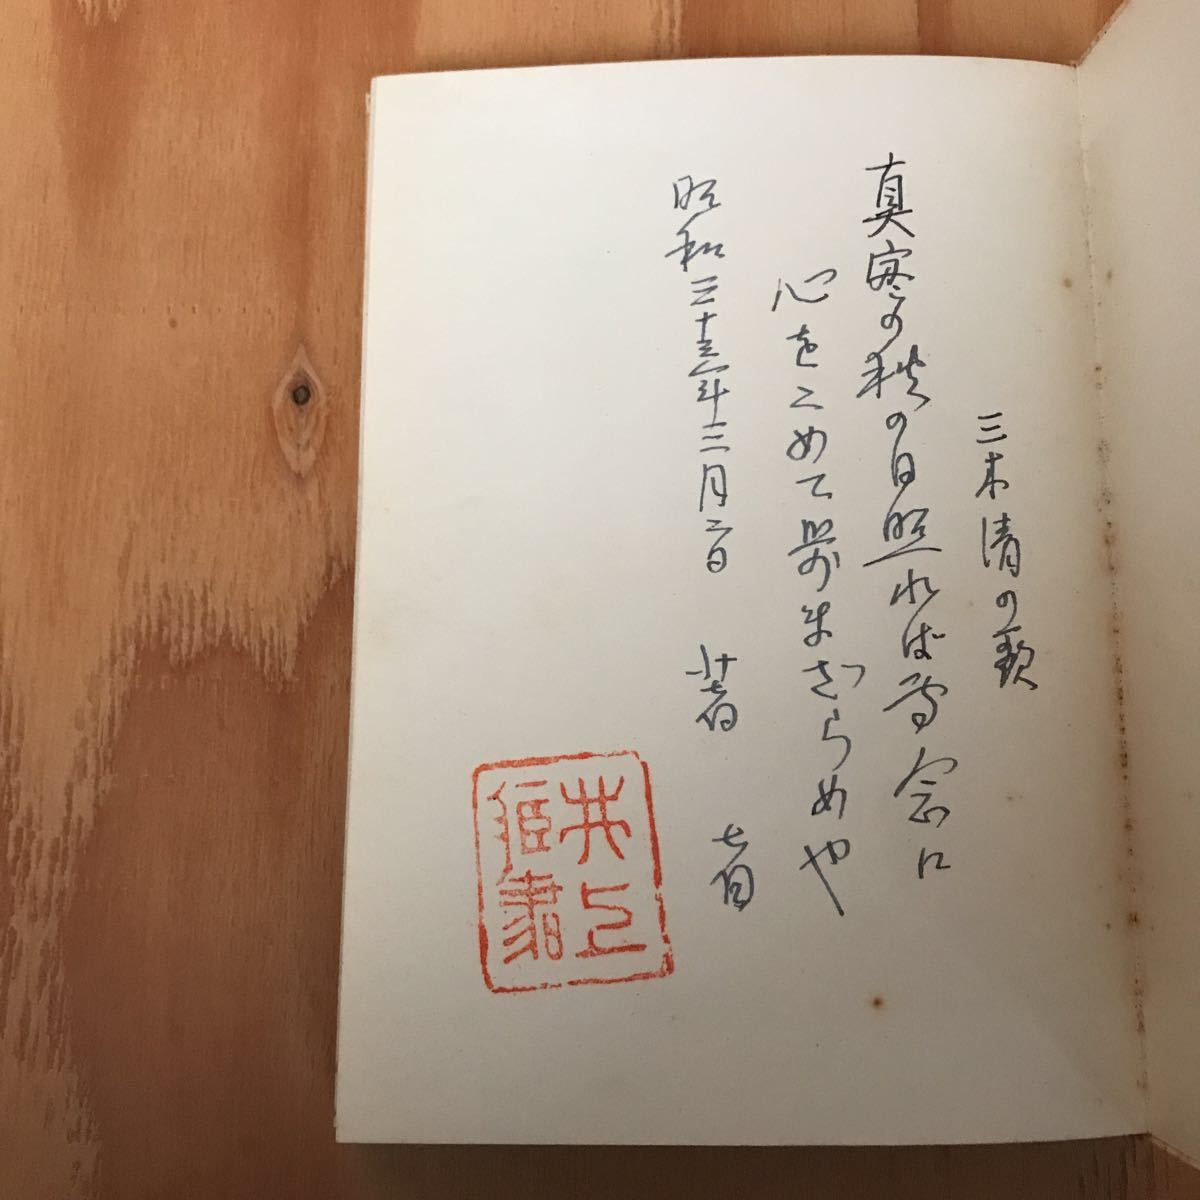 三木清の歌
真実の秋の日照れば専念に
心をこめて歩まざらめや
昭和三十六年三月二日 著者
井上